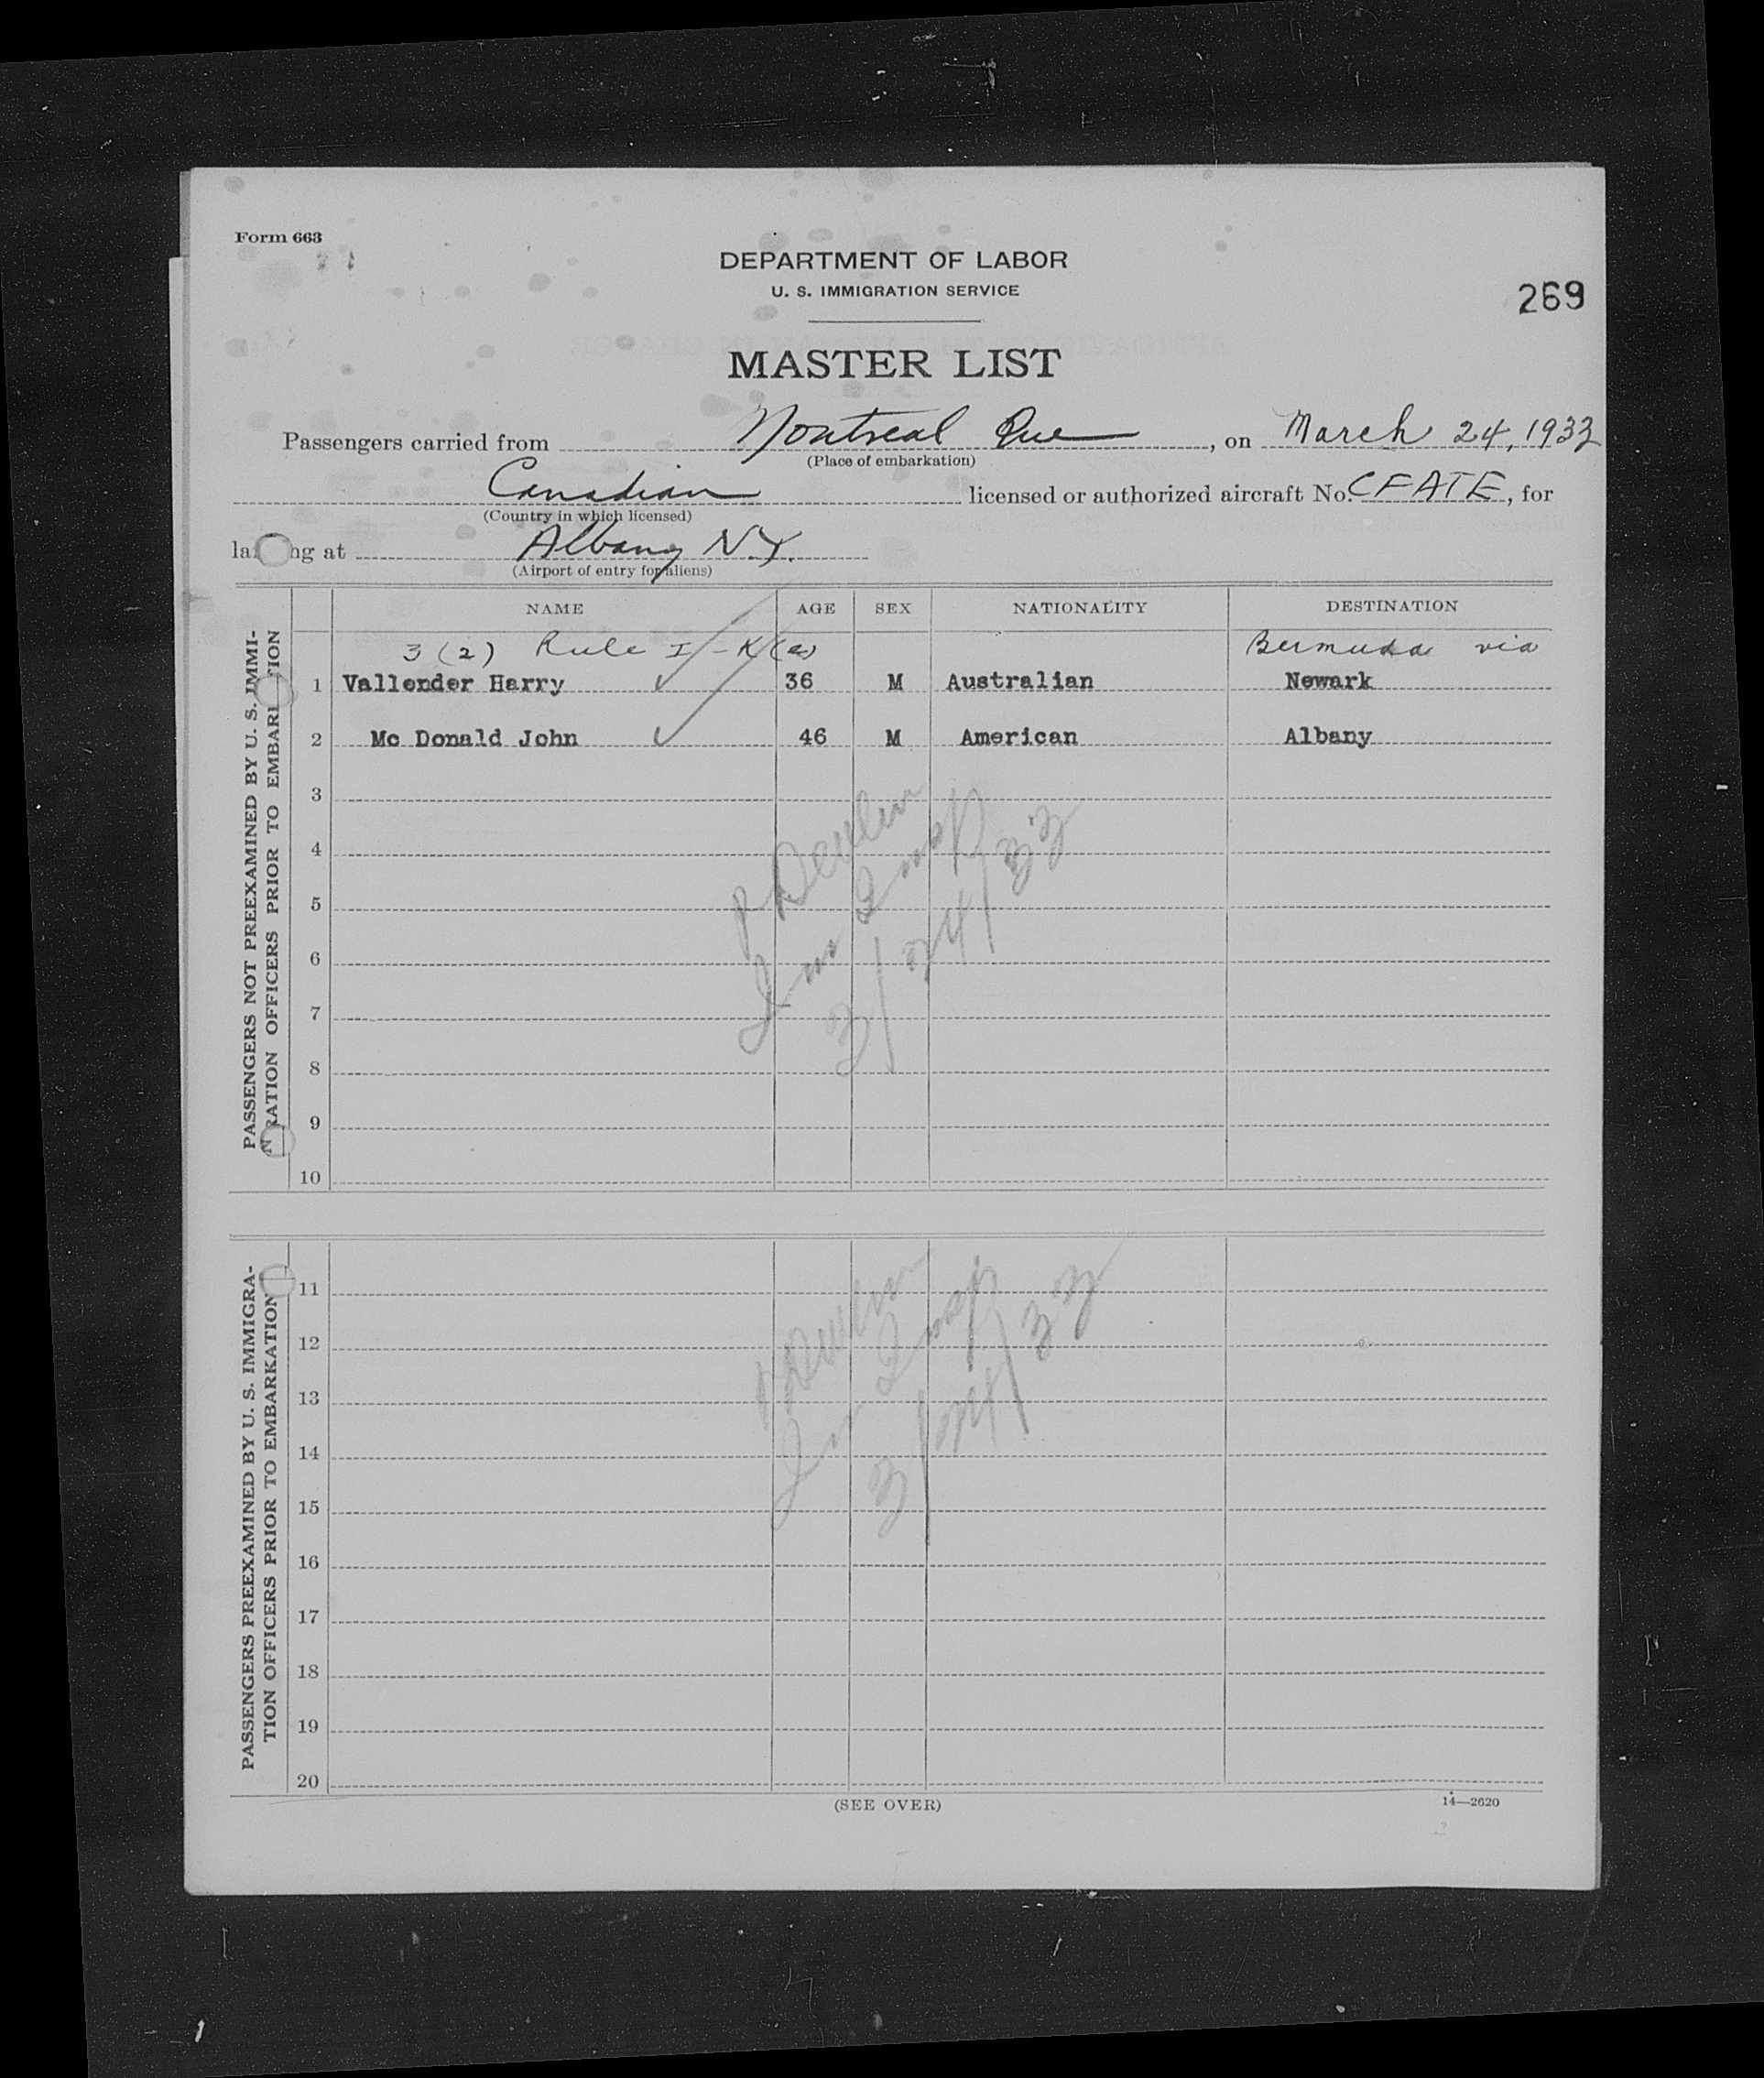 Form 663
DEPARTMENT OF LABOR
U. S. IMMIGRATION SERVICE
269
MASTER LIST
Passengers carried from Montreal Que, on March 24, 1933
(Place of embarkation)
Canadian licensed or authorized aircraft No. CFATE, for
(Country in which licensed)
la ng at Albany N.Y.
(Airport of entry for aliens)
NAME AGE SEX NATIONALITY DESTINATION
3 (2) Rule I - K (a) Bermuda via
1 Vallender Harry ✓ 36 M Australian Newark
2 Mc Donald John ✓ 46 M American Albany
3
4
5
6
7
8
9
10
PASSENGERS NOT PREEXAMINED BY U. S. IMMI-
RATION OFFICERS PRIOR TO EMBAR TION
P Devlin
Imm Insp
3/24/33
11
12
13
14
15
16
17
18
19
20
PASSENGERS PREEXAMINED BY U. S. IMMIGRA-
TION OFFICERS PRIOR TO EMBARKATION
P Devlin
Imm Insp
3/24/33
(SEE OVER)
14—2620